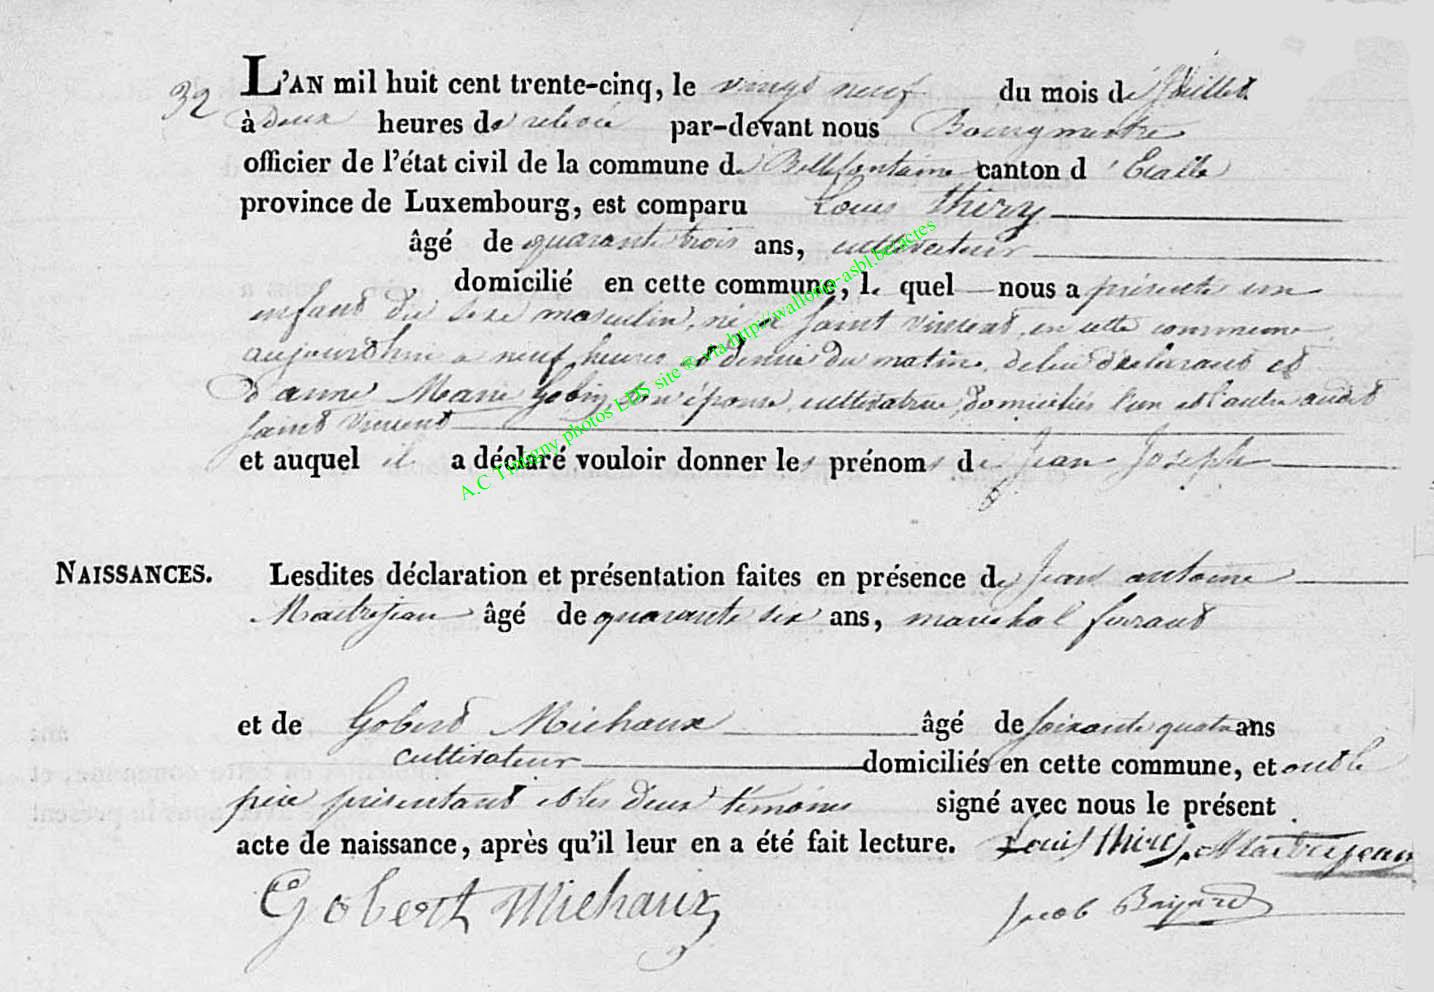 32 L'AN mil huit cent trente-cinq, le vingt neuf du mois de Juillet
à deux heures de relevée par-devant nous Bourgmestre
officier de l'état civil de la commune de Bellefontaine canton d'Etalle
province de Luxembourg, est comparu Louis Thiry
âgé de quarante trois ans, cultivateur
domicilié en cette commune, le quel nous a présenté un
enfant du sexe masculin, né à Saint Vincent, en cette commune
aujourdhui a neuf heures et demie du matin, de lui déclarant et
d'anne Marie Gobin, son épouse, cultivatrice, domiciliés l'un et l'autre audit
Saint Vincent
et auquel il a déclaré vouloir donner les prénoms de Jean Joseph
A.C Tintigny photos LDS site © via http://wallonia-asbl.be/actes
NAISSANCES. Lesdites déclaration et présentation faites en présence de Jean antoine
Maitrejean âgé de quarante six ans, marechal ferrant
et de Gobert Michaux âgé de soixante quatre ans
cultivateur domiciliés en cette commune, et ont le
père présentant et les deux témoins signé avec nous le présent
acte de naissance, après qu'il leur en a été fait lecture. Louis Thiry Maitrejean
Gobert Michaux Jacob Bayard